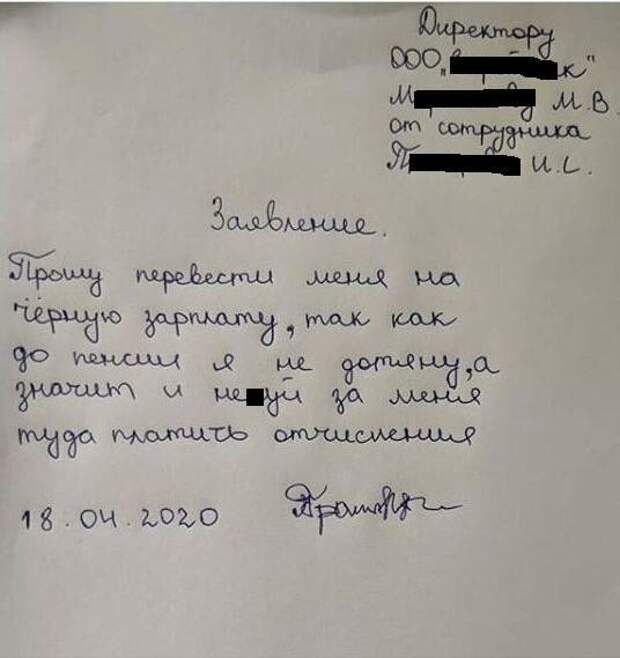 Директору
ООО „ к"
М у М.В.
от сотрудника
П И.С.
Заявление.
Прошу перевести меня на
чёрную зарплату, так как
до пенсии я не дотяну, а
значит и не уй за меня
туда платить отчисления
18.04.2020